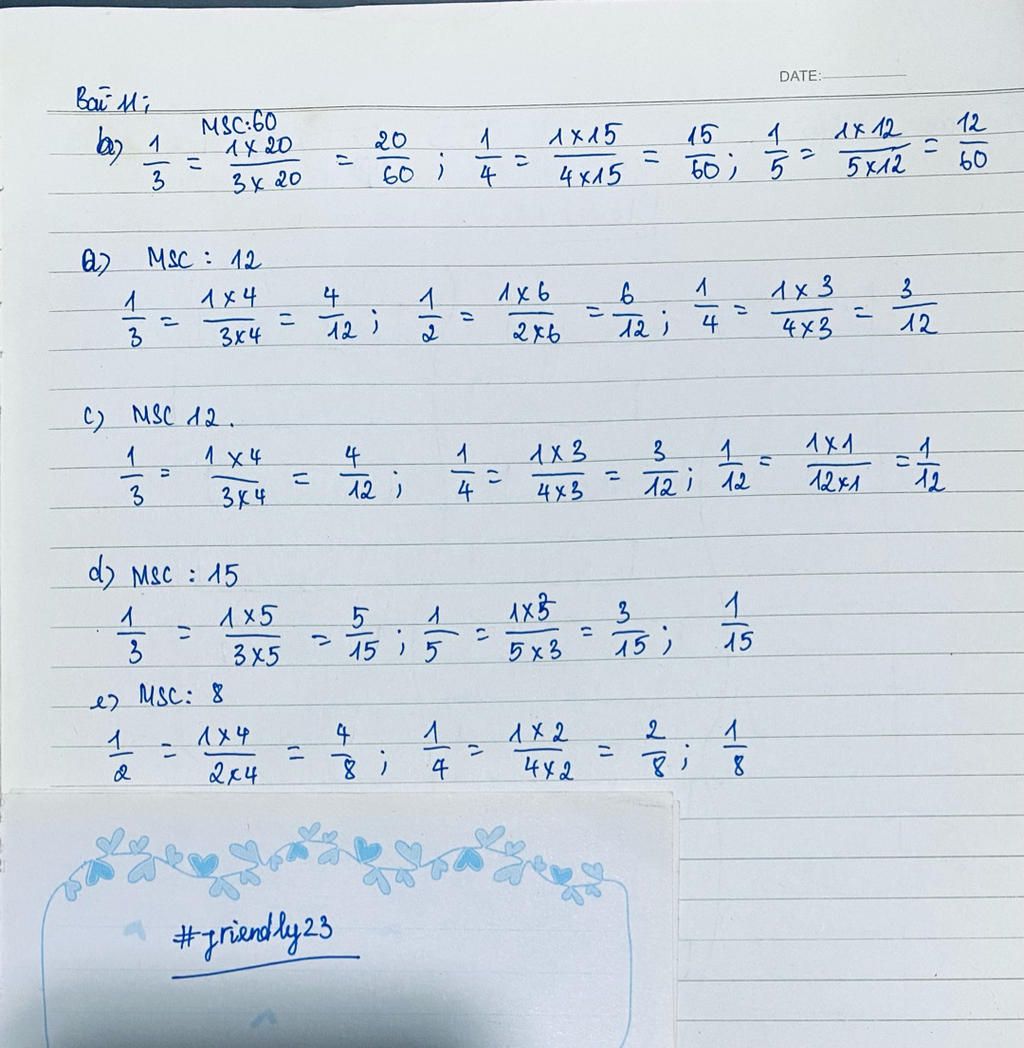 DATE:
Bài 11;
MSC:60
b) 1/3 = 1 x 20 / 3 x 20 = 20/60 ; 1/4 = 1 x 15 / 4 x 15 = 15/60 ; 1/5 = 1 x 12 / 5 x 12 = 12/60
a) MSC : 12
1/3 = 1 x 4 / 3 x 4 = 4/12 ; 1/2 = 1 x 6 / 2 x 6 = 6/12 ; 1/4 = 1 x 3 / 4 x 3 = 3/12
c) MSC 12.
1/3 = 1 x 4 / 3 x 4 = 4/12 ; 1/4 = 1 x 3 / 4 x 3 = 3/12 ; 1/12 = 1 x 1 / 12 x 1 = 1/12
d) MSC : 15
1/3 = 1 x 5 / 3 x 5 = 5/15 ; 1/5 = 1 x 3 / 5 x 3 = 3/15 ; 1/15
e) MSC: 8
1/2 = 1 x 4 / 2 x 4 = 4/8 ; 1/4 = 1 x 2 / 4 x 2 = 2/8 ; 1/8
#friendly23